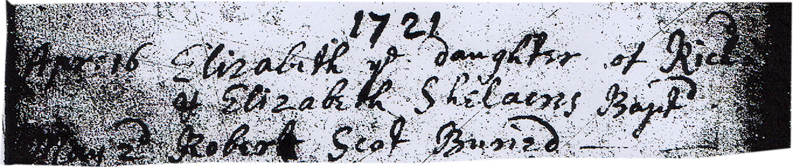 1721
Apr: 16 Elizabeth ye daughter of Richd
& Elizabeth Shelacres Bapt
May 2d Robert Scot Buried